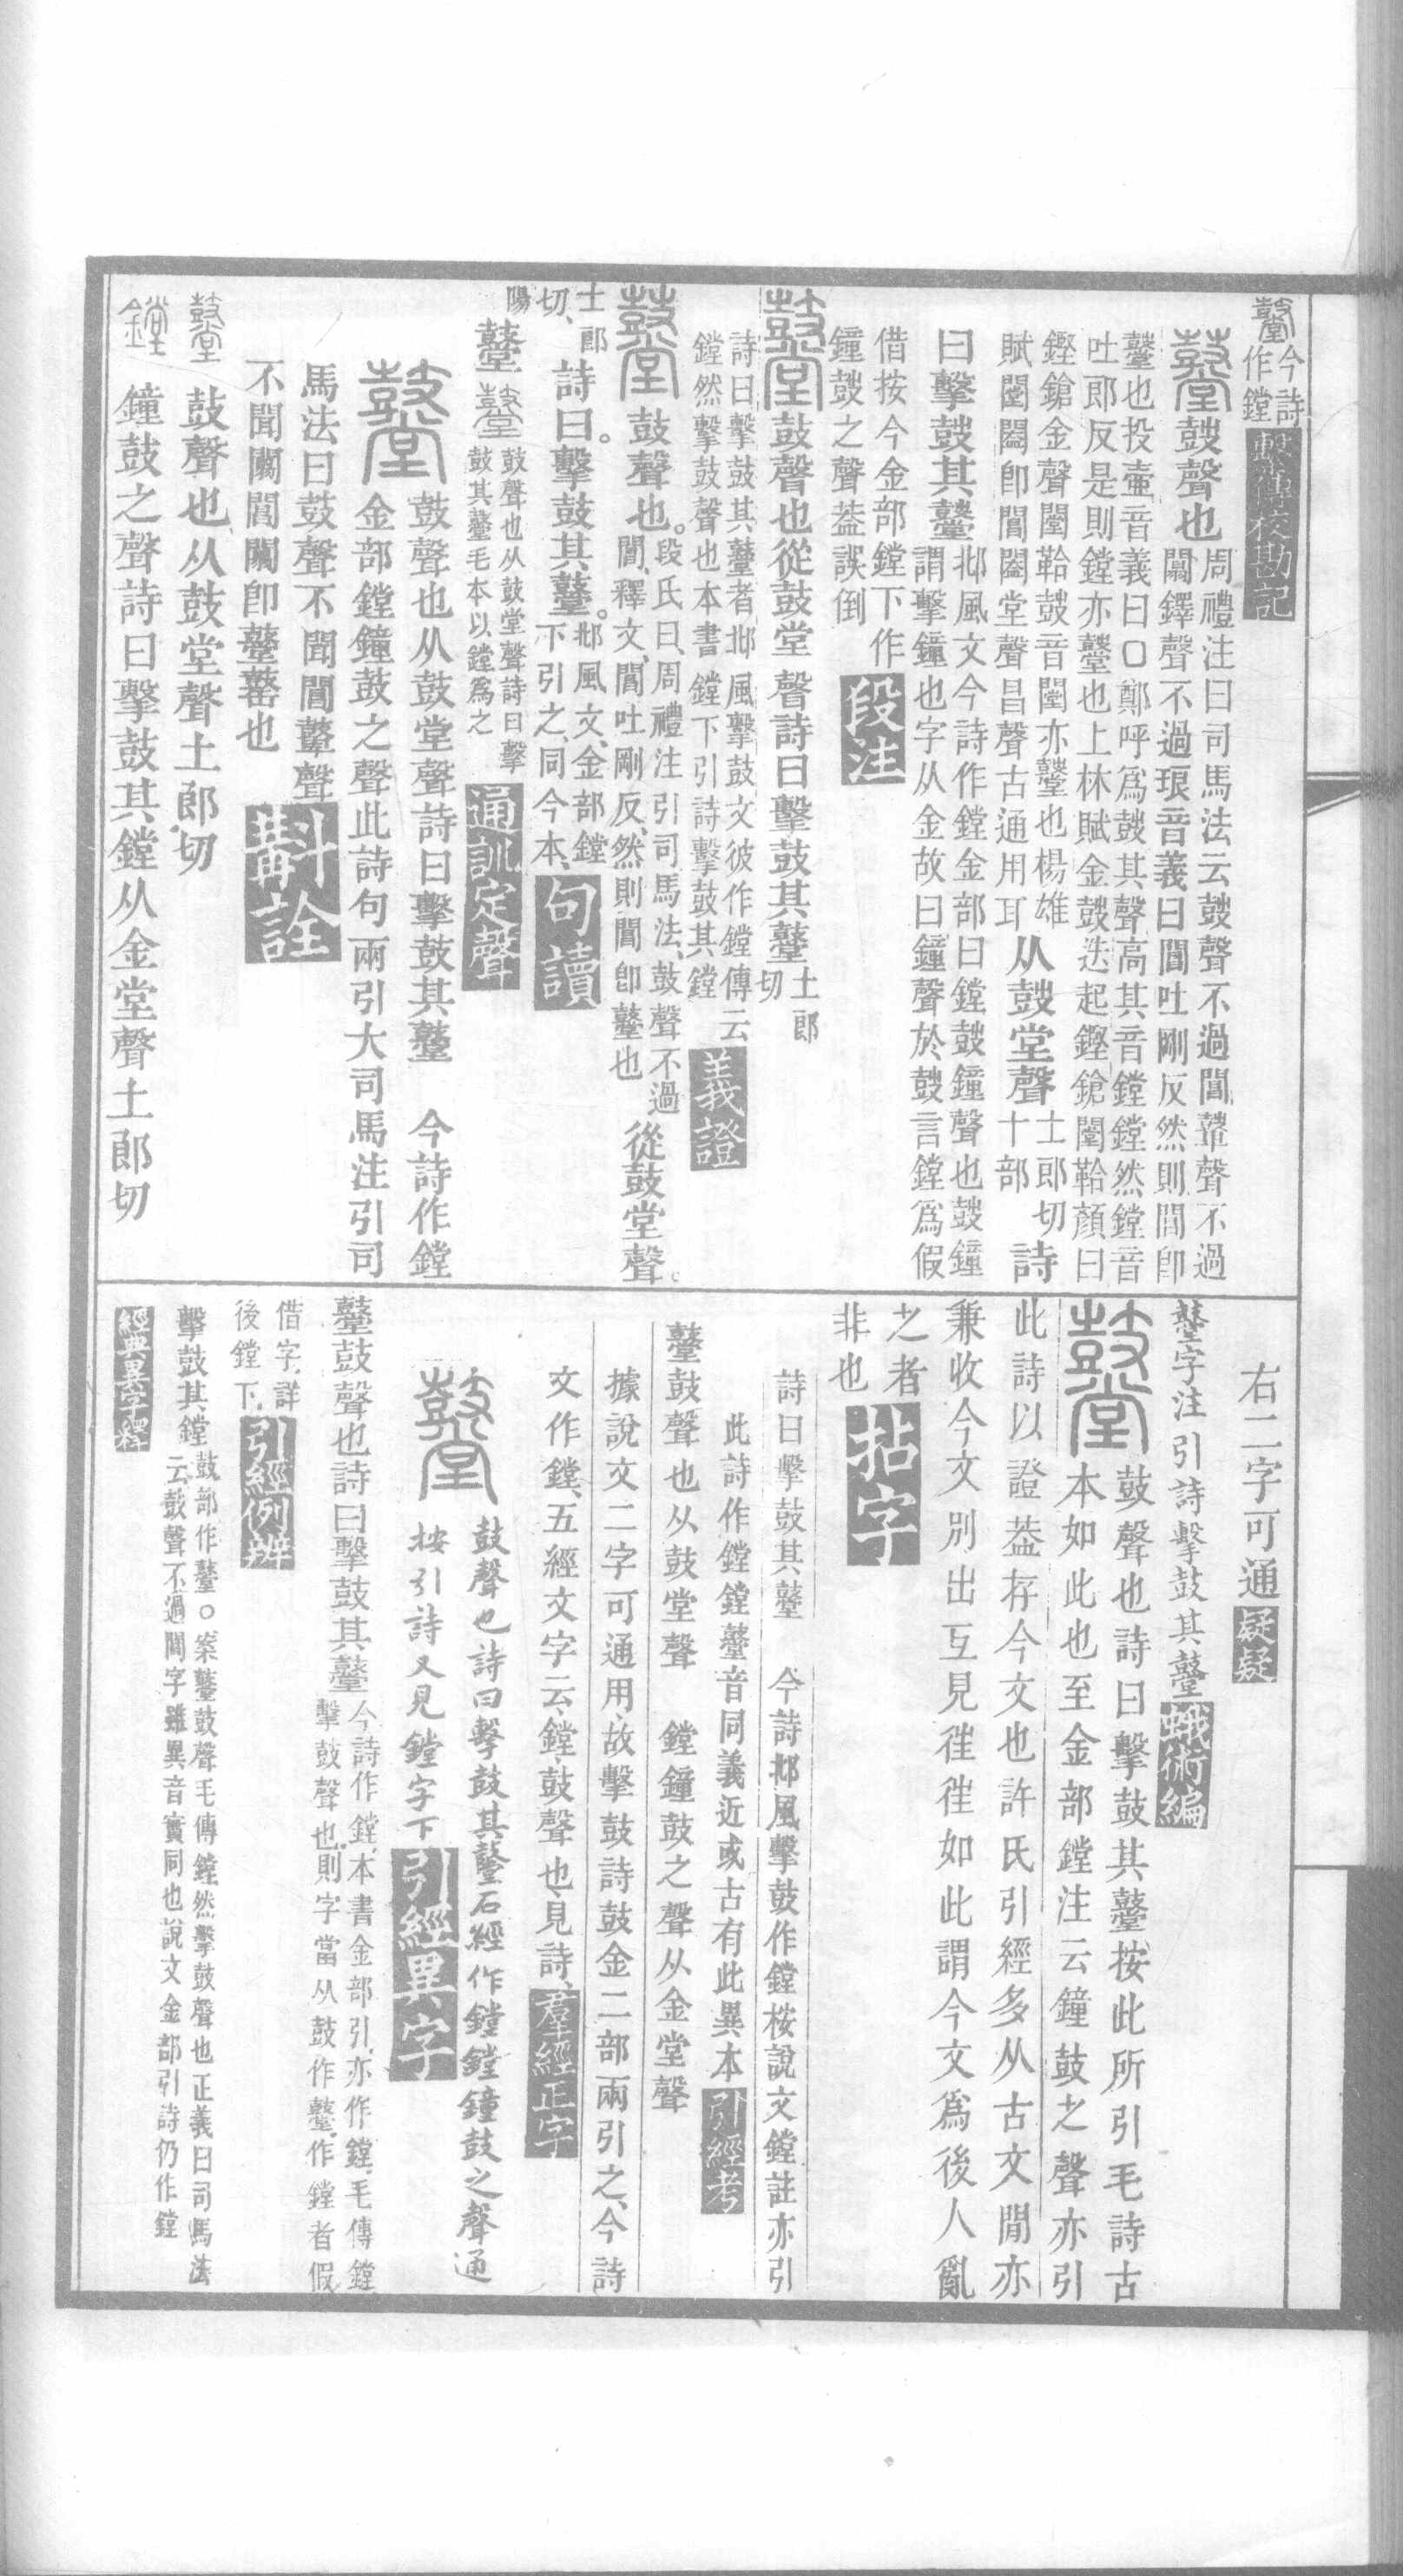 鼞今詩
作鏜
繫傳校勘記
鼞鼓聲也周禮注曰司馬法云鼓聲不過閶鼙聲不過
闒鐸聲不過琅音義曰閶吐剛反然則閶卽
鼞也投壺音義曰口鄭呼爲鼓其聲高其音鏜鏜然鏜音
吐郎反是則鏜亦鼞也上林賦金鼓迭起鏗鎗闛鞈顏曰
鏗鎗金聲闛鞈鼓音闛亦鼞也楊雄
賦閶闔卽閶闔堂聲昌聲古通用耳从鼓堂聲土郎切十部詩
曰擊鼓其鼞邶風文今詩作鏜金部曰鏜鼓鐘聲也鼓鐘
謂擊鐘也字从金故曰鐘聲於鼓言鏜爲假
借按今金部鏜下作
鐘鼓之聲葢誤倒
段注
鼞鼓聲也從鼓堂聲詩曰擊鼓其鼞土郎切
詩曰擊鼓其鼞者邶風擊鼓文彼作鏜傳云
鏜然擊鼓聲也本書鏜下引詩擊鼓其鏜
義證
鼞鼓聲也。段氏曰、周禮注引司馬法、鼓聲不過
閶、釋文、閶吐剛反、然則閶卽鼞也從鼓堂聲。
土郎切、詩曰。擊鼓其鼞。邶風文、金部鏜
下引之、同今本、
句讀
陽鼞鼞鼓聲也从鼓堂聲詩曰擊
鼓其鼞毛本以鏜爲之
通訓定聲
鼞鼓聲也从鼓堂聲詩曰擊鼓其鼞 今詩作鏜
金部鏜鐘鼓之聲此詩句兩引大司馬注引司
馬法曰鼓聲不聞閶鼙聲
不聞闒閶闒卽鼞鼛也
斠詮
鼞鼓聲也从鼓堂聲土郎切
鏜鐘鼓之聲詩曰擊鼓其鏜从金堂聲土郎切
右二字可通
疑疑
鼞字注引詩擊鼓其鼞
蛾術編
鼞鼓聲也詩曰擊鼓其鼞按此所引毛詩古
本如此也至金部鏜注云鐘鼓之聲亦引
此詩以證葢存今文也許氏引經多从古文閒亦
兼收今文別出互見徃徃如此謂今文爲後人亂
之者
非也
拈字
詩曰擊鼓其鼞 今詩邶風擊鼓作鏜桉說文鏜註亦引
此詩作鏜鏜鼞音同義近或古有此異本
引經考
鼞鼓聲也从鼓堂聲 鏜鐘鼓之聲从金堂聲
據說文二字可通用、故擊鼓詩鼓金二部兩引之、今詩
文作鏜、五經文字云、鏜、鼓聲也、見詩、
羣經正字
鼞鼓聲也詩曰擊鼓其鼞石經作鏜鏜鐘鼓之聲通
按引詩又見鏜字下
引經異字
鼞鼓聲也詩曰擊鼓其鼞今詩作鏜、本書金部引、亦作鏜、毛傳鏜
擊鼓聲也、則字當从鼓作鼞、作鏜者假
借字、詳
後鏜下、
引經例辨
擊鼓其鏜鼓部作鼞○案鼞鼓聲毛傳鏜然擊鼓聲也正義曰司馬法
云鼓聲不過閶字雖異音實同也說文金部引詩仍作鏜
經典異字釋